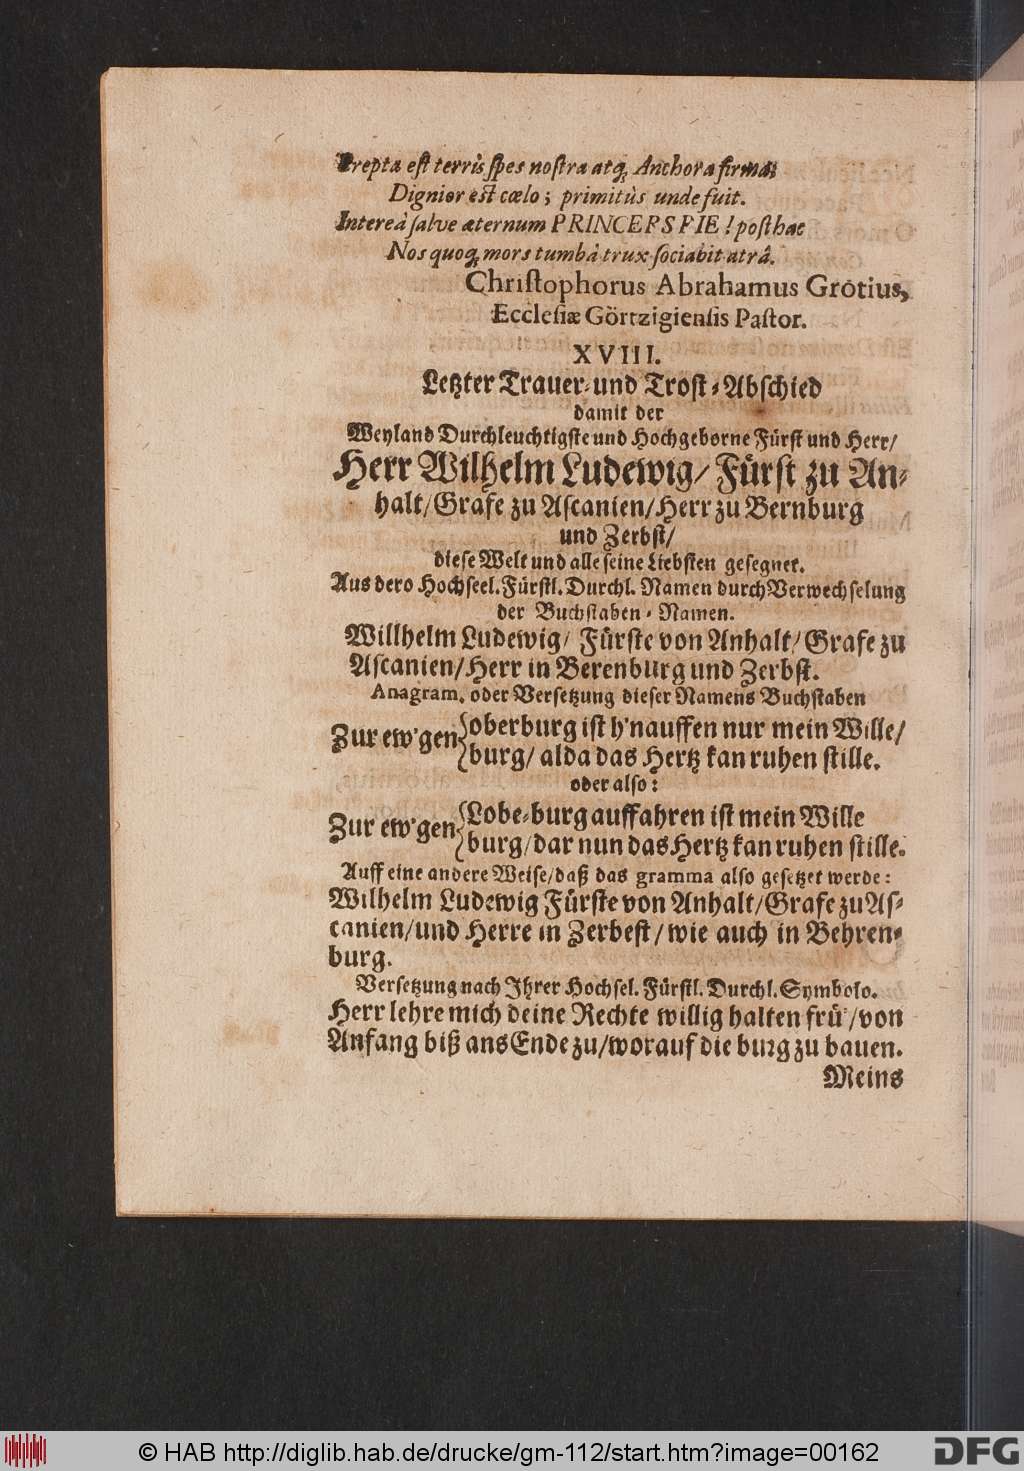 Erepta est terris spes nostra atq; Anchora firma;
Dignior est cœlo; primitùs unde fuit.
Intereà salve æternum PRINCEPS PIE! posthac
Nos quoq; mors tumbà trux sociabit atrâ.
Christophorus Abrahamus Grotius,
Ecclesiæ Görtzigiensis Pastor.
XVIII.
Letzter Trauer- und Trost-Abschied
damit der
Weyland Durchleuchtigste und Hochgeborne Fürst und Herr/
Herr Wilhelm Ludewig/ Fürst zu An-
halt/ Grafe zu Ascanien/ Herr zu Bernburg
und Zerbst/
diese Welt und alle seine Liebsten gesegnet.
Aus dero Hochseel. Fürstl. Durchl. Namen durch Verwechselung
der Buchstaben-Namen.
Willhelm Ludewig/ Fürste von Anhalt/ Grafe zu
Ascanien/ Herr in Berenburg und Zerbst.
Anagram. oder Versetzung dieser Namens Buchstaben
Zur ew'gen oberburg ist h'nauffen nur mein Wille/
burg/ alda das Hertz kan ruhen stille.
oder also:
Zur ew'gen Lobe-burg auffahren ist mein Wille
burg/ dar nun das Hertz kan ruhen stille.
Auff eine andere Weise/ daß das gramma also gesetzet werde:
Wilhelm Ludewig Fürste von Anhalt/ Grafe zu As-
canien/ und Herre in Zerbest/ wie auch in Behren-
burg.
Versetzung nach Ihrer Hochsel. Fürstl. Durchl. Symbolo.
Herr lehre mich deine Rechte willig halten frü/ von
Anfang biß ans Ende zu/ worauf die burg zu bauen.
Meins
© HAB http://diglib.hab.de/drucke/gm-112/start.htm?image=00162
DFG